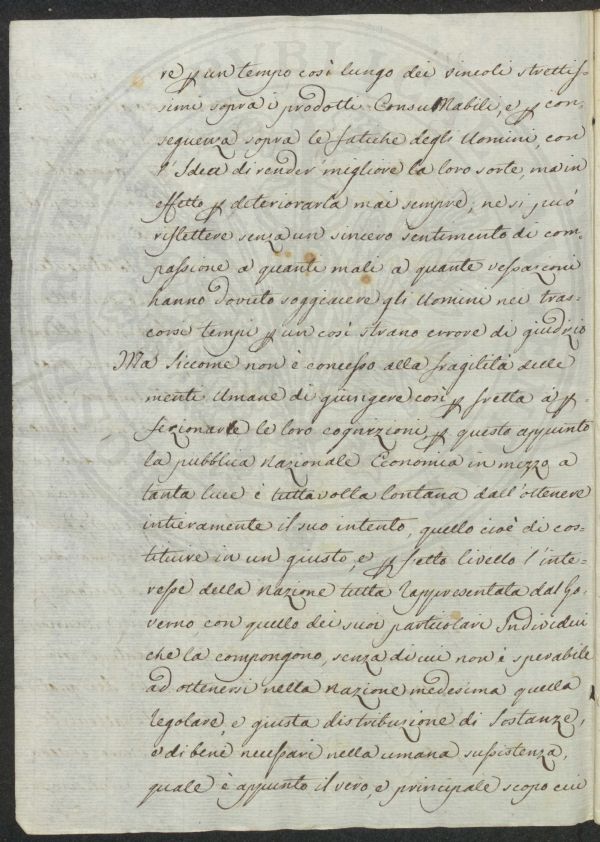 re ꝑ un tempo così lungo dei vincoli strettiſ-
simi sopra i prodotti ConsuMabili, e ꝑ con-
seguenza sopra le fatiche degli Uomini, con
l'Idea di render migliore la loro sorte, ma in
effetto ꝑ deteriorarla mai sempre, ne si può
riflettere senza un sincero sentimento di com-
paſsione a quanti mali a quante veſsazioni
hanno dovuto soggiacere gli Uomini nei tras-
corsi tempi ꝑ un così strano errore di giudizio
Ma' Siccome non è conceſso alla fragilità delle
menti Umane di giungere così ꝑ fretta à ꝑ-
fezionare le loro cognizioni, ꝑ questo appunto
la pubblica Nazionale Economia in mezzo a
tanta luce è tuttavolta lontana dall'ottenere
intieramente il suo intento, quello cioè di cos-
tituire in un giusto, e ꝑfetto livello l'inte-
reſse della Nazione tutta rappresentata dal Go-
verno, con quello dei suoi particolari Individui
che la compongono, senza di cui non è sperabile
ad ottenersi nella Nazione medesima quella
regolare, e giusta distribuzione di Sostanze,
e di beni neceſsari nella umana suſsistenza,
quale è appunto il vero, e principale scopo cui